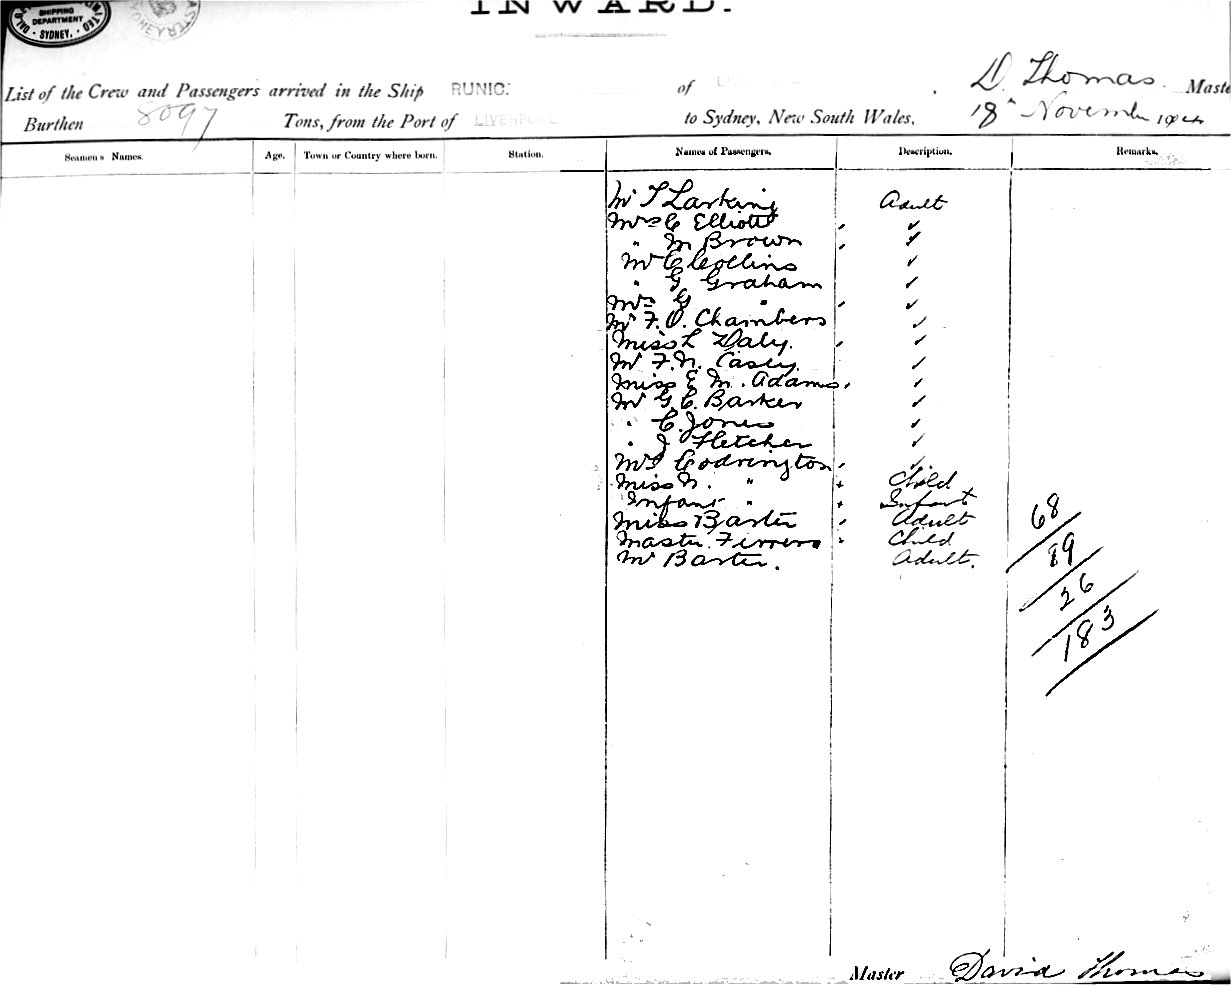 SHIPPING
DEPARTMENT
SYDNEY.
INWARD.
List of the Crew and Passengers arrived in the Ship RUNIC. of , D. Thomas. Maste
Burthen 8097 Tons, from the Port of LIVERPOOL to Sydney, New South Wales, 18th November
Seamen's Names. Age. Town or Country where born. Station. Names of Passengers. Description. Remarks.
Mr T Larking Adult
Mrs C Elliott ✓
" M Brown ✓
Mr C Collins ✓
" G Graham ✓
Mrs G " ✓
Mr F. O. Chambers ✓
Miss L Daly. ✓
Mr F. N. Casey. ✓
Miss E. M. Adams. ✓
Mr G. C. Barker ✓
" C. Jones ✓
" J Fletcher ✓
Mrs Codrington ✓
Miss N. " Child
Infant " Infant
Miss Baxter Adult
Master Child
Mr Baxter. Adult.
68
89
26
183
Master David Thomas